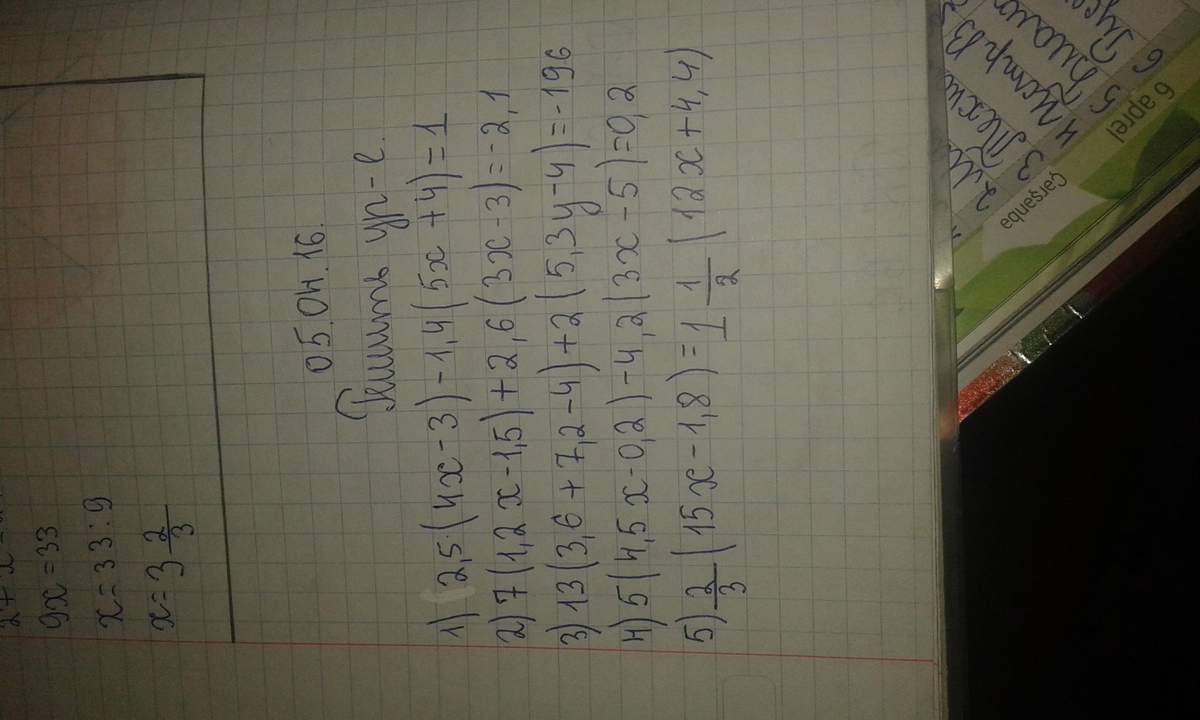 9x=33
x=33:9
x=3 2/3
05.04.16.
Решить ур-е.
1) 2,5·(4x-3)-1,4(5x+4)=1
2) 7(1,2x-1,5)+2,6(3x-3)=-2,1
3) 13(3,6+7,2-4)+2(5,3y-4)=-196
4) 5(4,5x-0,2)-4,2(3x-5)=0,2
5) 2/3(15x-1,8)=1 1/2(12x+4,4)
2
3
4
5
6
6 aprel
Çərşənbə